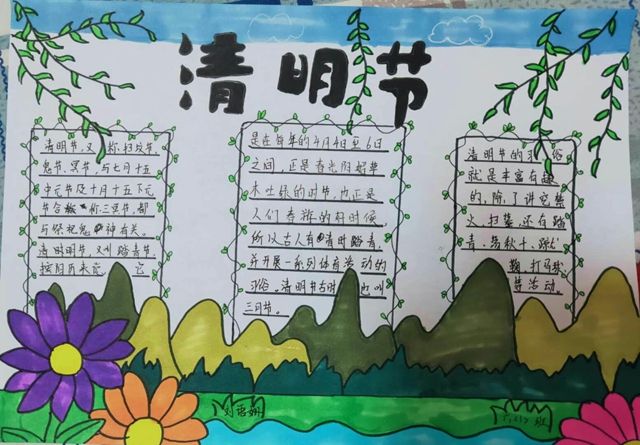 清明节
清明节,又 称扫坟节
鬼节、冥节,与七月十五
中元节及十月十五下元
节合 称三冥节,都
与祭祀鬼 神有关。
清明节,又叫踏青节
按阳历来说 它
是在每年的4月4日至6日
之间,正是春光明媚草
木吐绿的时节,也正是
人们春游的好时候,
所以古人有 清明踏青,
并开展一系列体育活动的
习俗。清明节古时 也叫
三月节。
清明节的习 俗
就是丰富有趣
的,除了讲究禁
火、扫墓,还有踏
青、荡秋千、蹴
鞠、打马球
等活动。
班